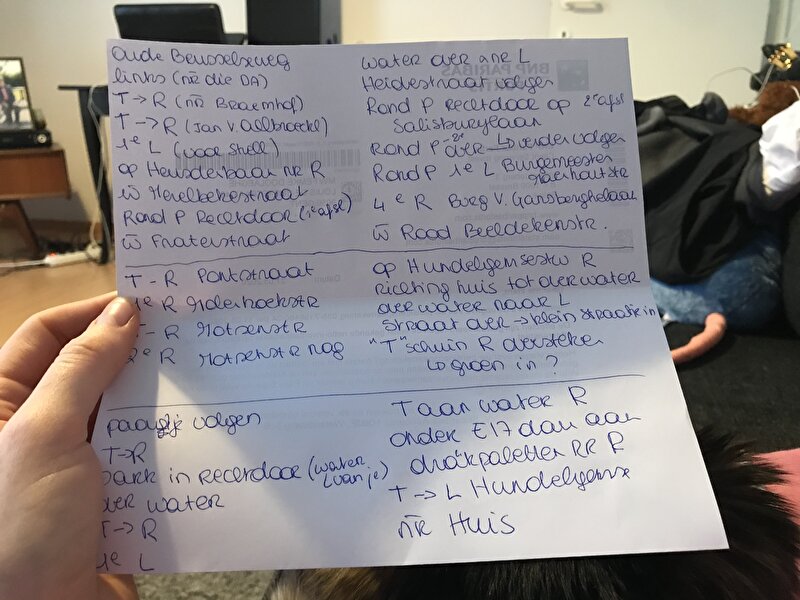 Oude Brusselseweg
links (nr die DA)
T → R (nr Braemhof)
T → R (Jan V. Aelbroeckl)
1e L (voor Shell)
op Heusdenbaan nr R
w Merelbekestraat
Rond P Rechtdoor (1e afsl)
w Fraterstraat
T - R Pontstraat
1e R Molenhoekstr
T - R Hotsenstr
2e R Hotsenstr nog
paadje volgen
T → R
park in Rechtdoor (water
L van je)
over water
T → R
1e L
water over nr L
Heidestraat volgen
Rond P Rechtdoor op 2e afsl
Salisburylaan
Rond P 2e over ↳ verder volgen
Rond P 1e L Burgemeester
4e R Burg V. Gansberghelaan
w Rood Beeldekenstr.
op Hundelgemsestw R
Richting huis tot over water
over water naar L
straat over → klein straatje in
"T" schuin R oversteken
↳ groen in ?
T aan water R
onder E17 dan aan
R
T → L Hundelgemse
nr Huis
BNP PARIBAS